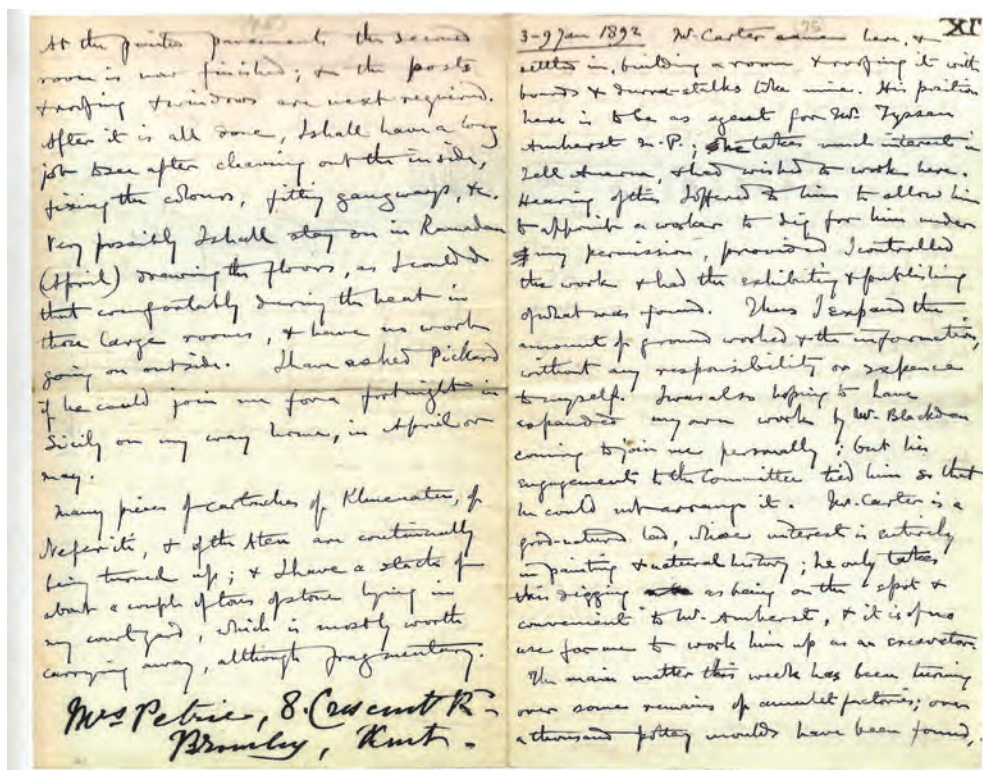 At the painted pavements the second
room is now finished; & the posts
& roofing & windows are next required.
After it is all done, I shall have a long
job to see after cleaning out the inside,
fixing the colours, fitting gangways, &c.
Very possibly I shall stay on in Ramadan
(April) drawing the floors, as I could do
that comfortably during the heat in
those large rooms, & have no work
going on outside. I have asked Pickard
if he could join me for a fortnight in
Sicily on my way home, in April or
May.
Many pieces of cartouches of Khuenaten, of
Nefertiti, & of the Aten are continually
being turned up; & I have a stack of
about a couple of tons of stone lying in
my courtyard, which is mostly worth
carrying away, although fragmentary.
Mrs Petrie, 8. Crescent Rd.
Bromley, Kent.
XI
75
3-9 Jan 1892 Mr. Carter came here, &
settled in, building a room & roofing it with
boards & durra-stalks like mine. His position
here is to be as agent for Mr. Tyssen
Amherst M.P.; he takes much interest in
Tell Amarna, & had wished to work here.
Hearing of this I offered to him to allow him
to appoint a worker to dig for him under
my permission, provided I controlled
the work & had the exhibiting & publishing
of what was found. Thus I expand the
amount of ground worked & the information,
without any responsibility or expence
to myself. I was also hoping to have
expanded my own work by Mr. Blackden
coming to join me personally; but his
engagements to the Committee tied him so that
he could not arrange it. Mr. Carter is a
good-natured lad, whose interest is entirely
in painting & natural history; he only takes
this digging as being on the spot &
convenient to Mr. Amherst, & it is of no
use for me to work him up as an excavator.
The main matter this week has been turning
over some remains of amulet factories; over
a thousand pottery moulds have been found,